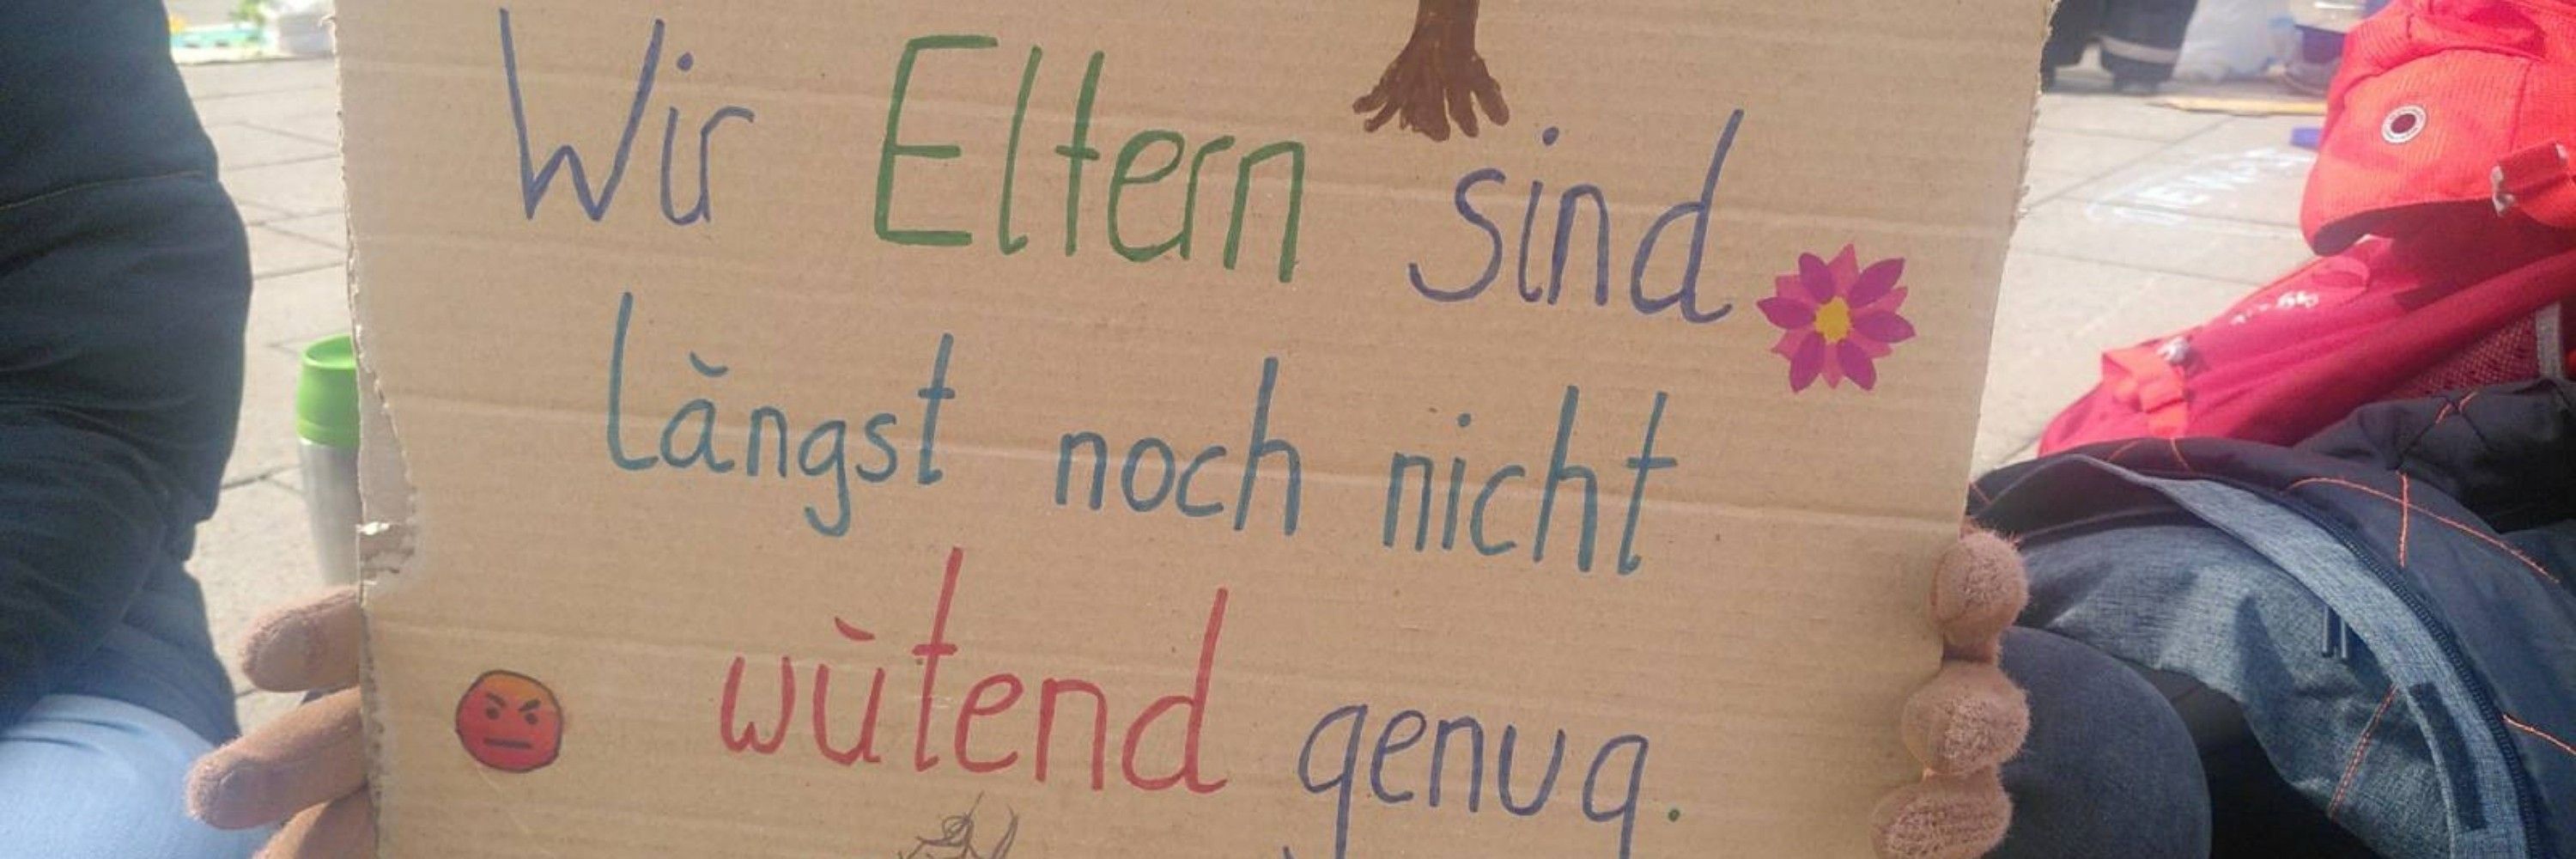 Wir Eltern sind
längst noch nicht
wütend genug.